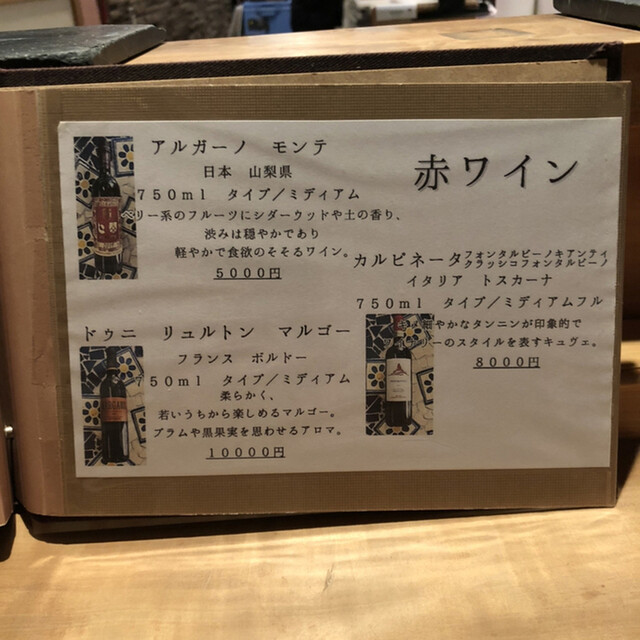 赤ワイン
アルガーノ モンテ
日本 山梨県
750ml タイプ/ミディアム
ベリー系のフルーツにシダーウッドや土の香り、
渋みは穏やかであり
軽やかで食欲のそそるワイン。
5000円
カルビネータフォンタルビーノキアンティ
クラッシコフォンタルビーノ
イタリア トスカーナ
750ml タイプ/ミディアムフル
細やかなタンニンが印象的で
リーのスタイルを表すキュヴェ。
8000円
ドゥニ リュルトン マルゴー
フランス ボルドー
750ml タイプ/ミディアム
柔らかく、
若いうちから楽しめるマルゴー。
プラムや黒果実を思わせるアロマ。
10000円